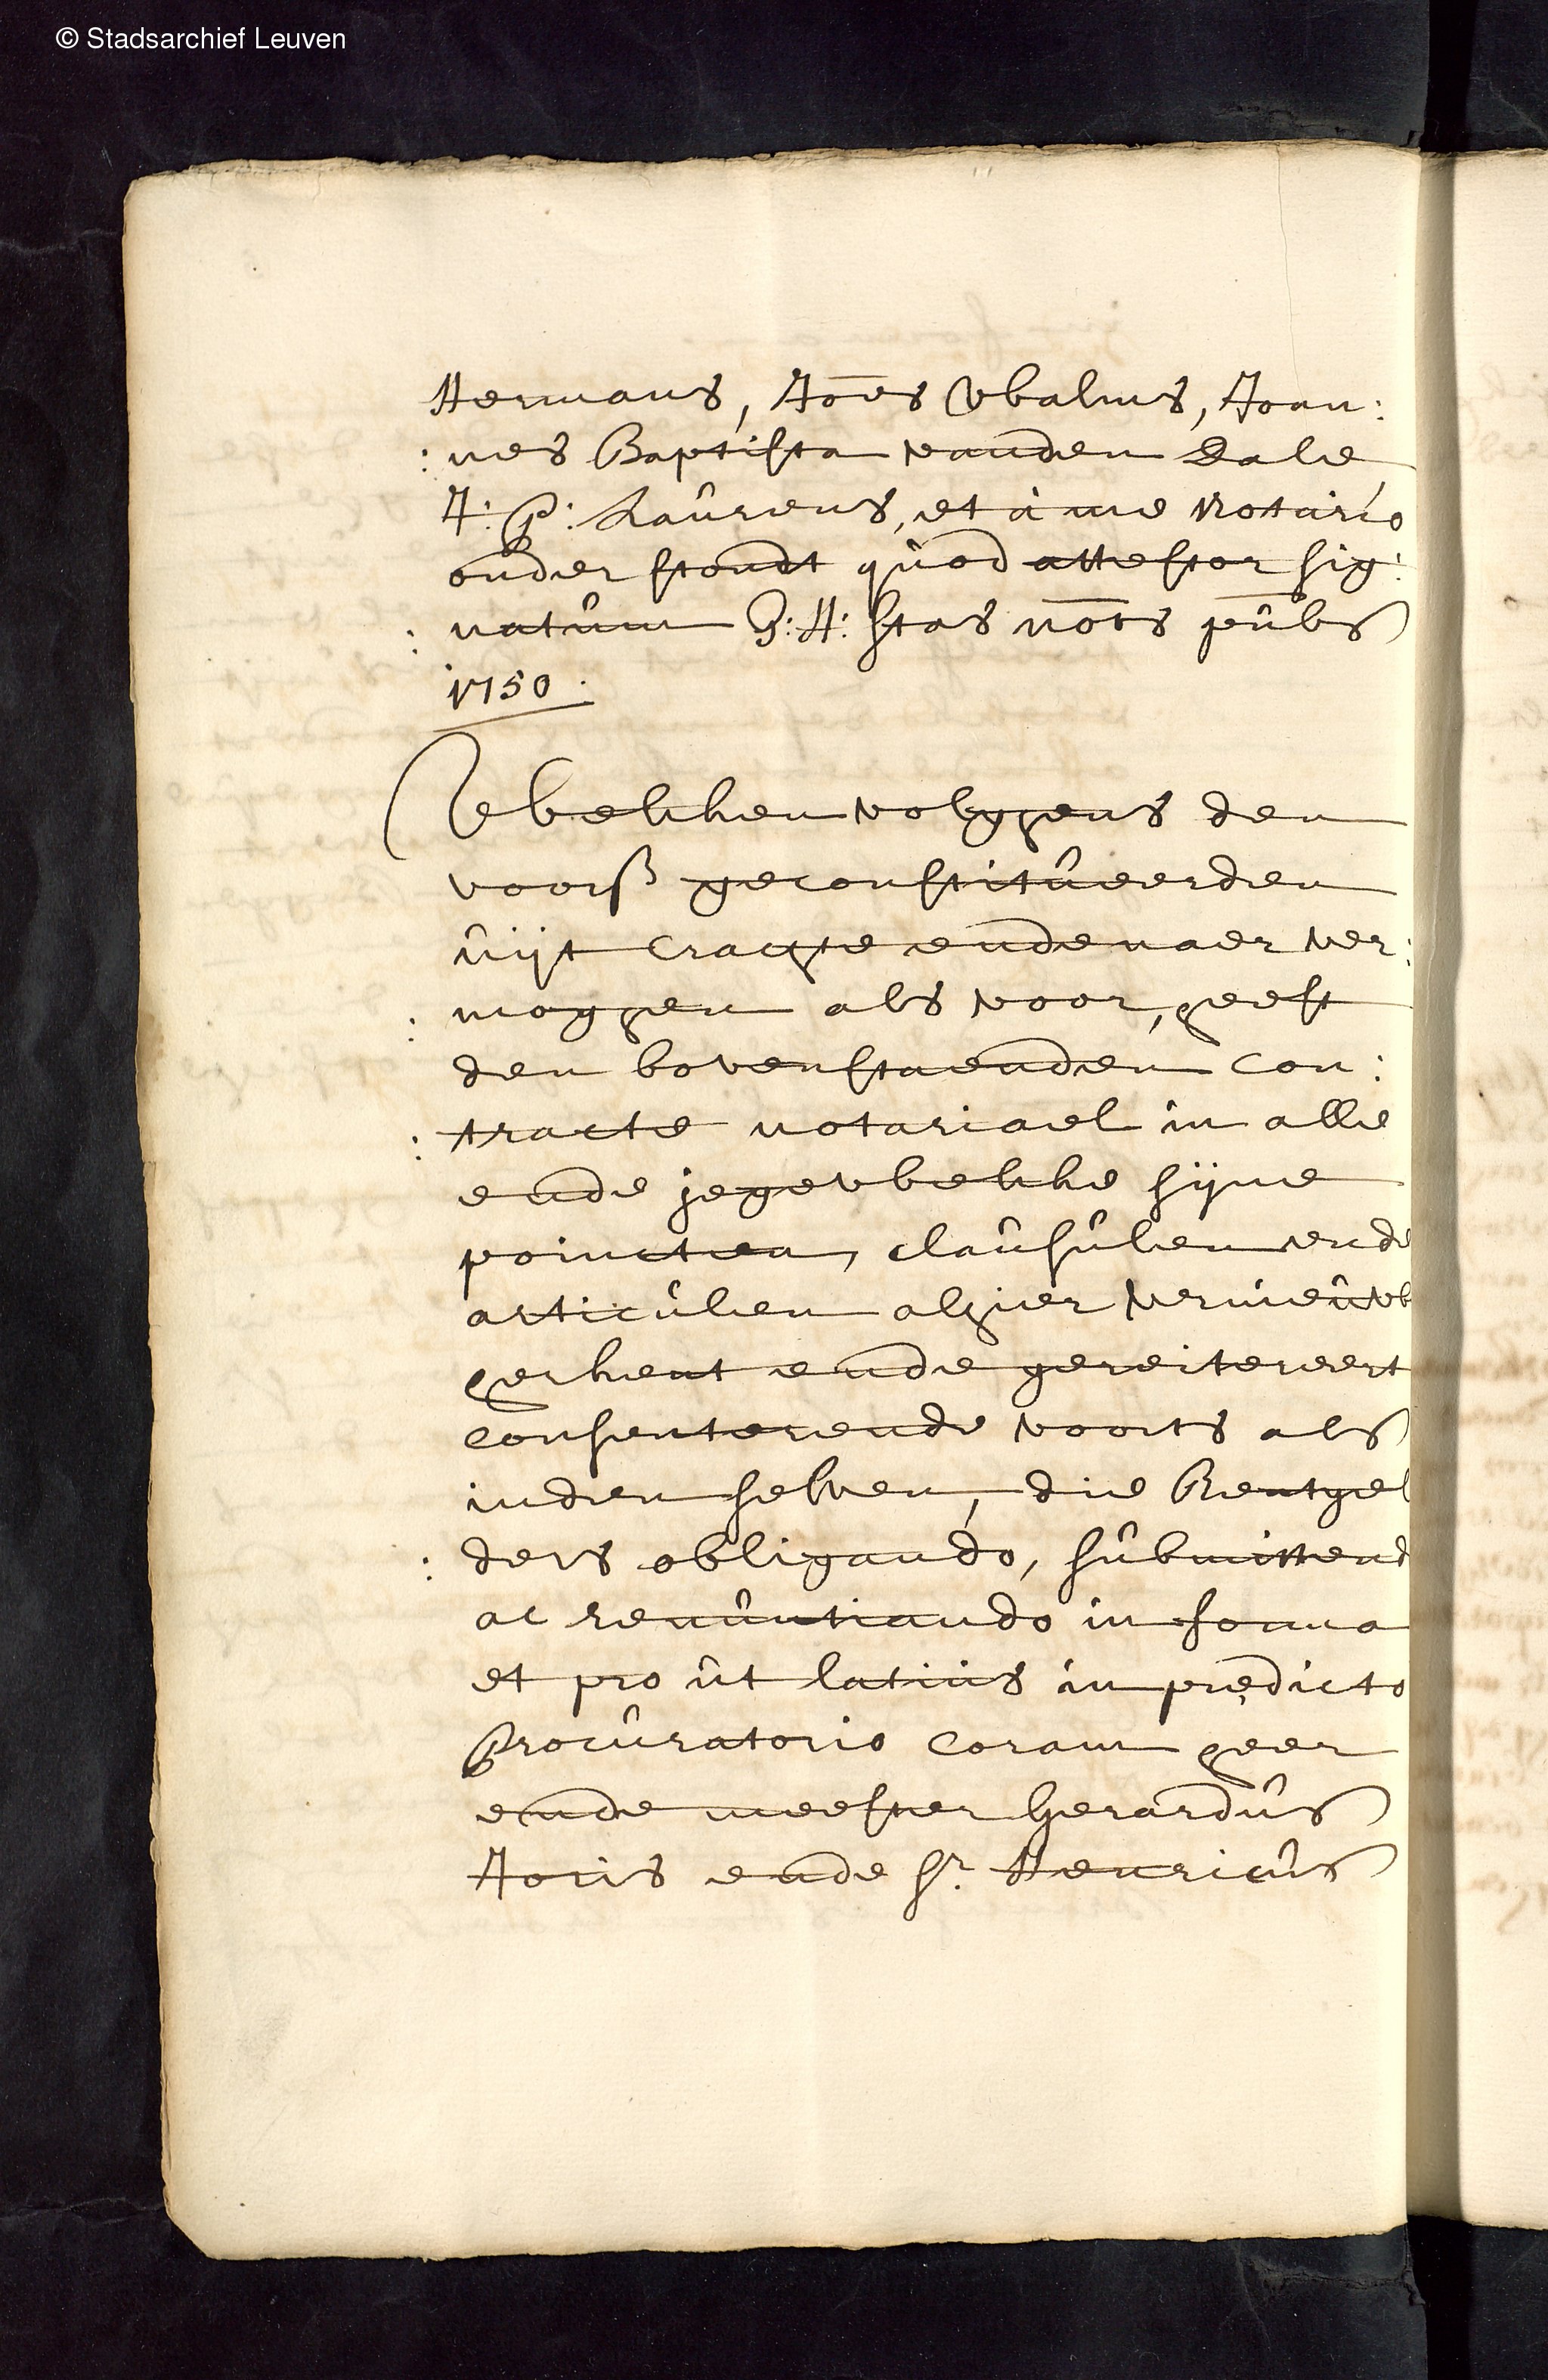 © Stadsarchief Leuven
Hermans, Joēs Wbalms, Joan:
:nes Baptista vanden Dale
J: P: Laurens, et à me Notario
onderstondt quod attestor sig:
:natum G: H: Stas nōts pūbs
1750.
Welcken volghens den
voors geconstitueerden
uijt crachte ende naer ver:
:moghen als voor, heeft
den bovenstaenden con:
:tracte notariael in alle
ende jegewelcke sijne
poincten, clausulen ende
articulen alhier vernieuw
herkent ende gereitereert
consenterende voorts als
inden selven, die Rentgel
:ders obligando, submittend
ac renuntiando in forma
et pro ut latius in predicto
Procuratorio coram heer
ende meester Gerardus
Joris ende sr. Henricus